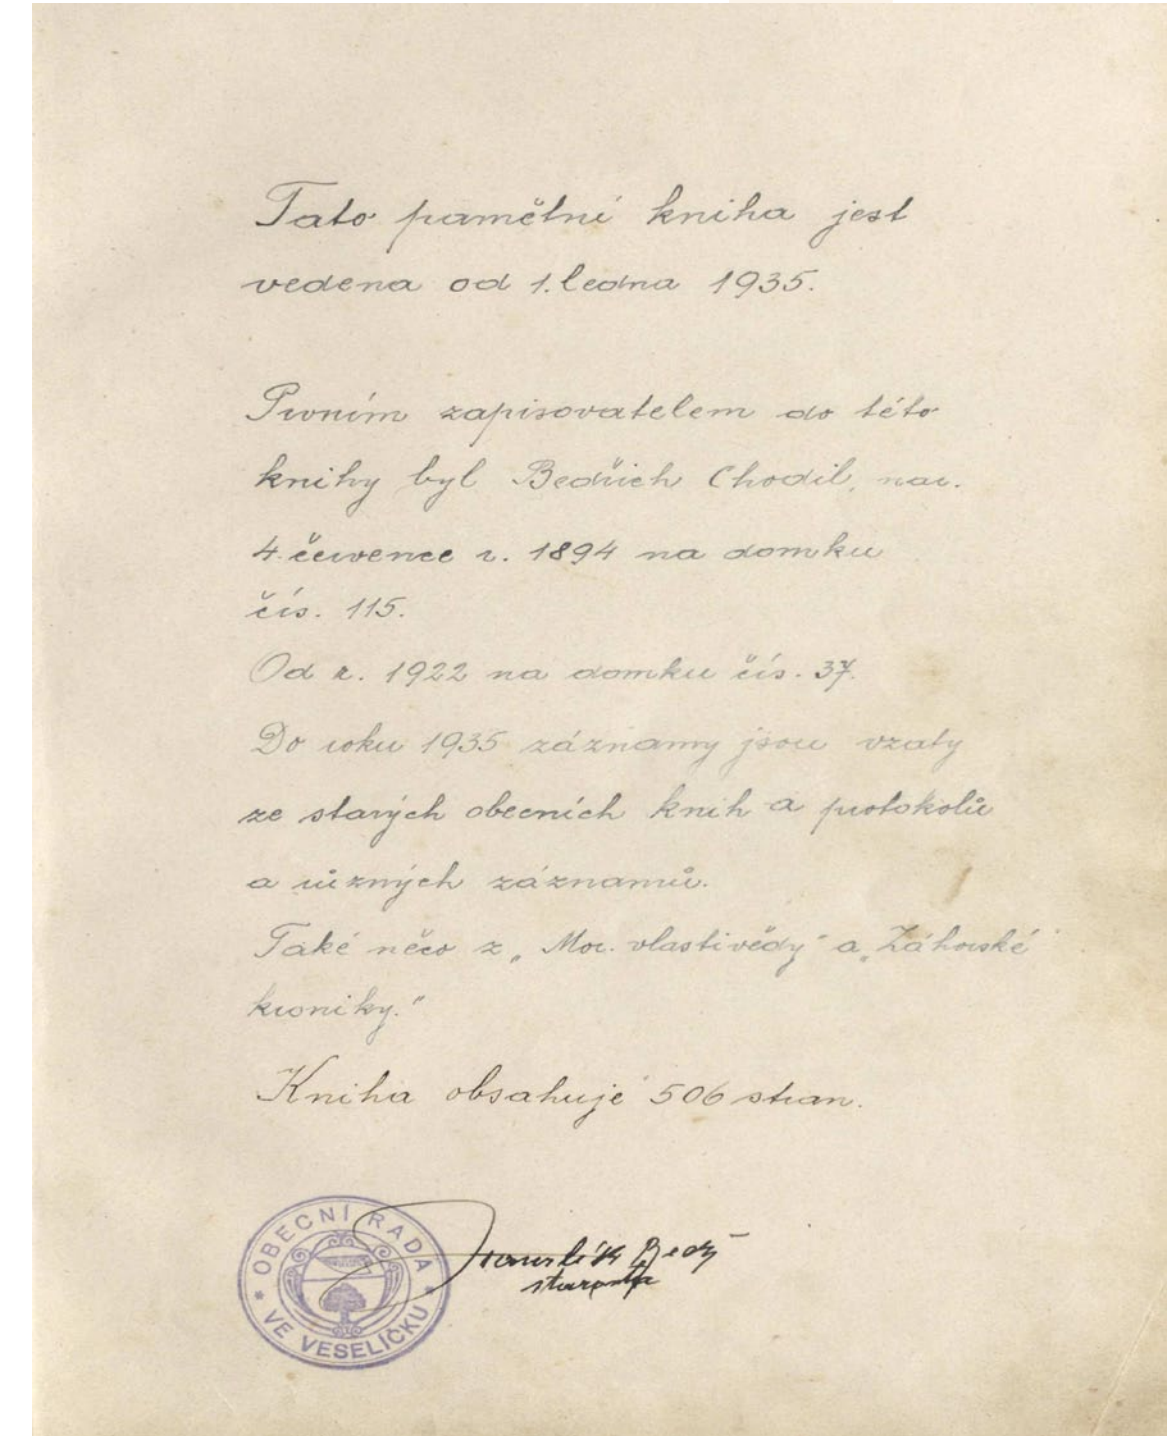 Tato pamětní kniha jest
vedena od 1. ledna 1935.
Prvním zapisovatelem do této
knihy byl Bedřich Chodil, nar.
4. července r. 1894 na domku
čís. 115.
Od r. 1922 na domku čís. 37.
Do roku 1935 záznamy jsou vzaty
ze starých obecních knih a protokolů
a různých záznamů.
Také něco z „Mor. vlastivědy" a „Záhorské
kroniky."
Kniha obsahuje 506 stran.
OBECNÍ RADA
* VE VESELÍČKU *
Bedř
starosta